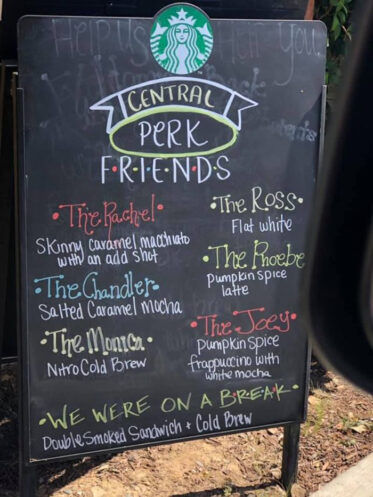 Help us Help You
CENTRAL
PERK
F•R•I•E•N•D•S
•The Rachel•
Skinny caramel macchiato
with an add shot
•The Chandler•
Salted Caramel Mocha
•The Monica•
Nitro Cold Brew
•The Ross•
Flat white
•The Phoebe•
pumpkin spice
latte
•The Joey•
pumpkin spice
frappuccino with
white mocha
•WE WERE ON A B•R•E•A•K•
Double Smoked Sandwich + Cold Brew